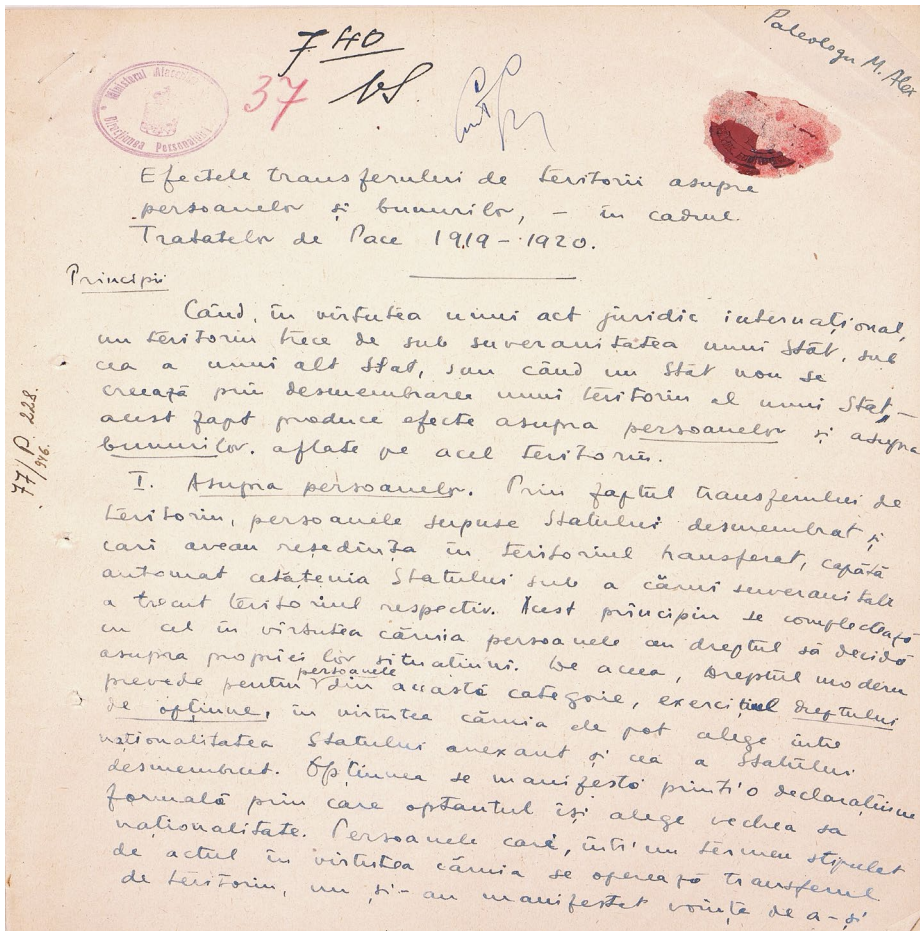 Paleologu M. Alex
7 40
37
Ministerul Afacerilor
Direcțiunea Personalului
Efectele transferului de teritorii asupra
persoanelor și bunurilor, – în cadrul
Tratatelor de Pace 1919 – 1920.
Principii
Când, în virtutea unui act juridic internațional,
un teritoriu trece de sub suveranitatea unui Stat, sub
cea a unui alt Stat, sau când un Stat nou se
creează prin desmembrarea unui teritoriu al unui Stat, –
acest fapt produce efecte asupra persoanelor și asupra
bunurilor, aflate pe acel teritoriu.
77/P. 228.
946.
I. Asupra persoanelor. Prin faptul transferului de
teritoriu, persoanele supuse Statului desmembrat și
cari aveau reședința în teritoriul transferat, capătă
automat cetățenia Statului sub a cărui suveranitate
a trecut teritoriul respectiv. Acest principiu se complectează
cu cel în virtutea căruia persoanele au dreptul să decidă
asupra propriei lor situațiuni. De aceea, Dreptul modern
prevede pentru persoanele din această categorie, exercițiul dreptului
de opțiune, în virtutea căruia ele pot alege între
naționalitatea Statului anexant și cea a Statului
desmembrat. Opțiunea se manifestă printr'o declarațiune
formală prin care optantul își alege vechea sa
naționalitate. Persoanele cari, într'un termen stipulat
de actul în virtutea căruia se operează transferul
de teritoriu, nu și-au manifestat voința de a-și